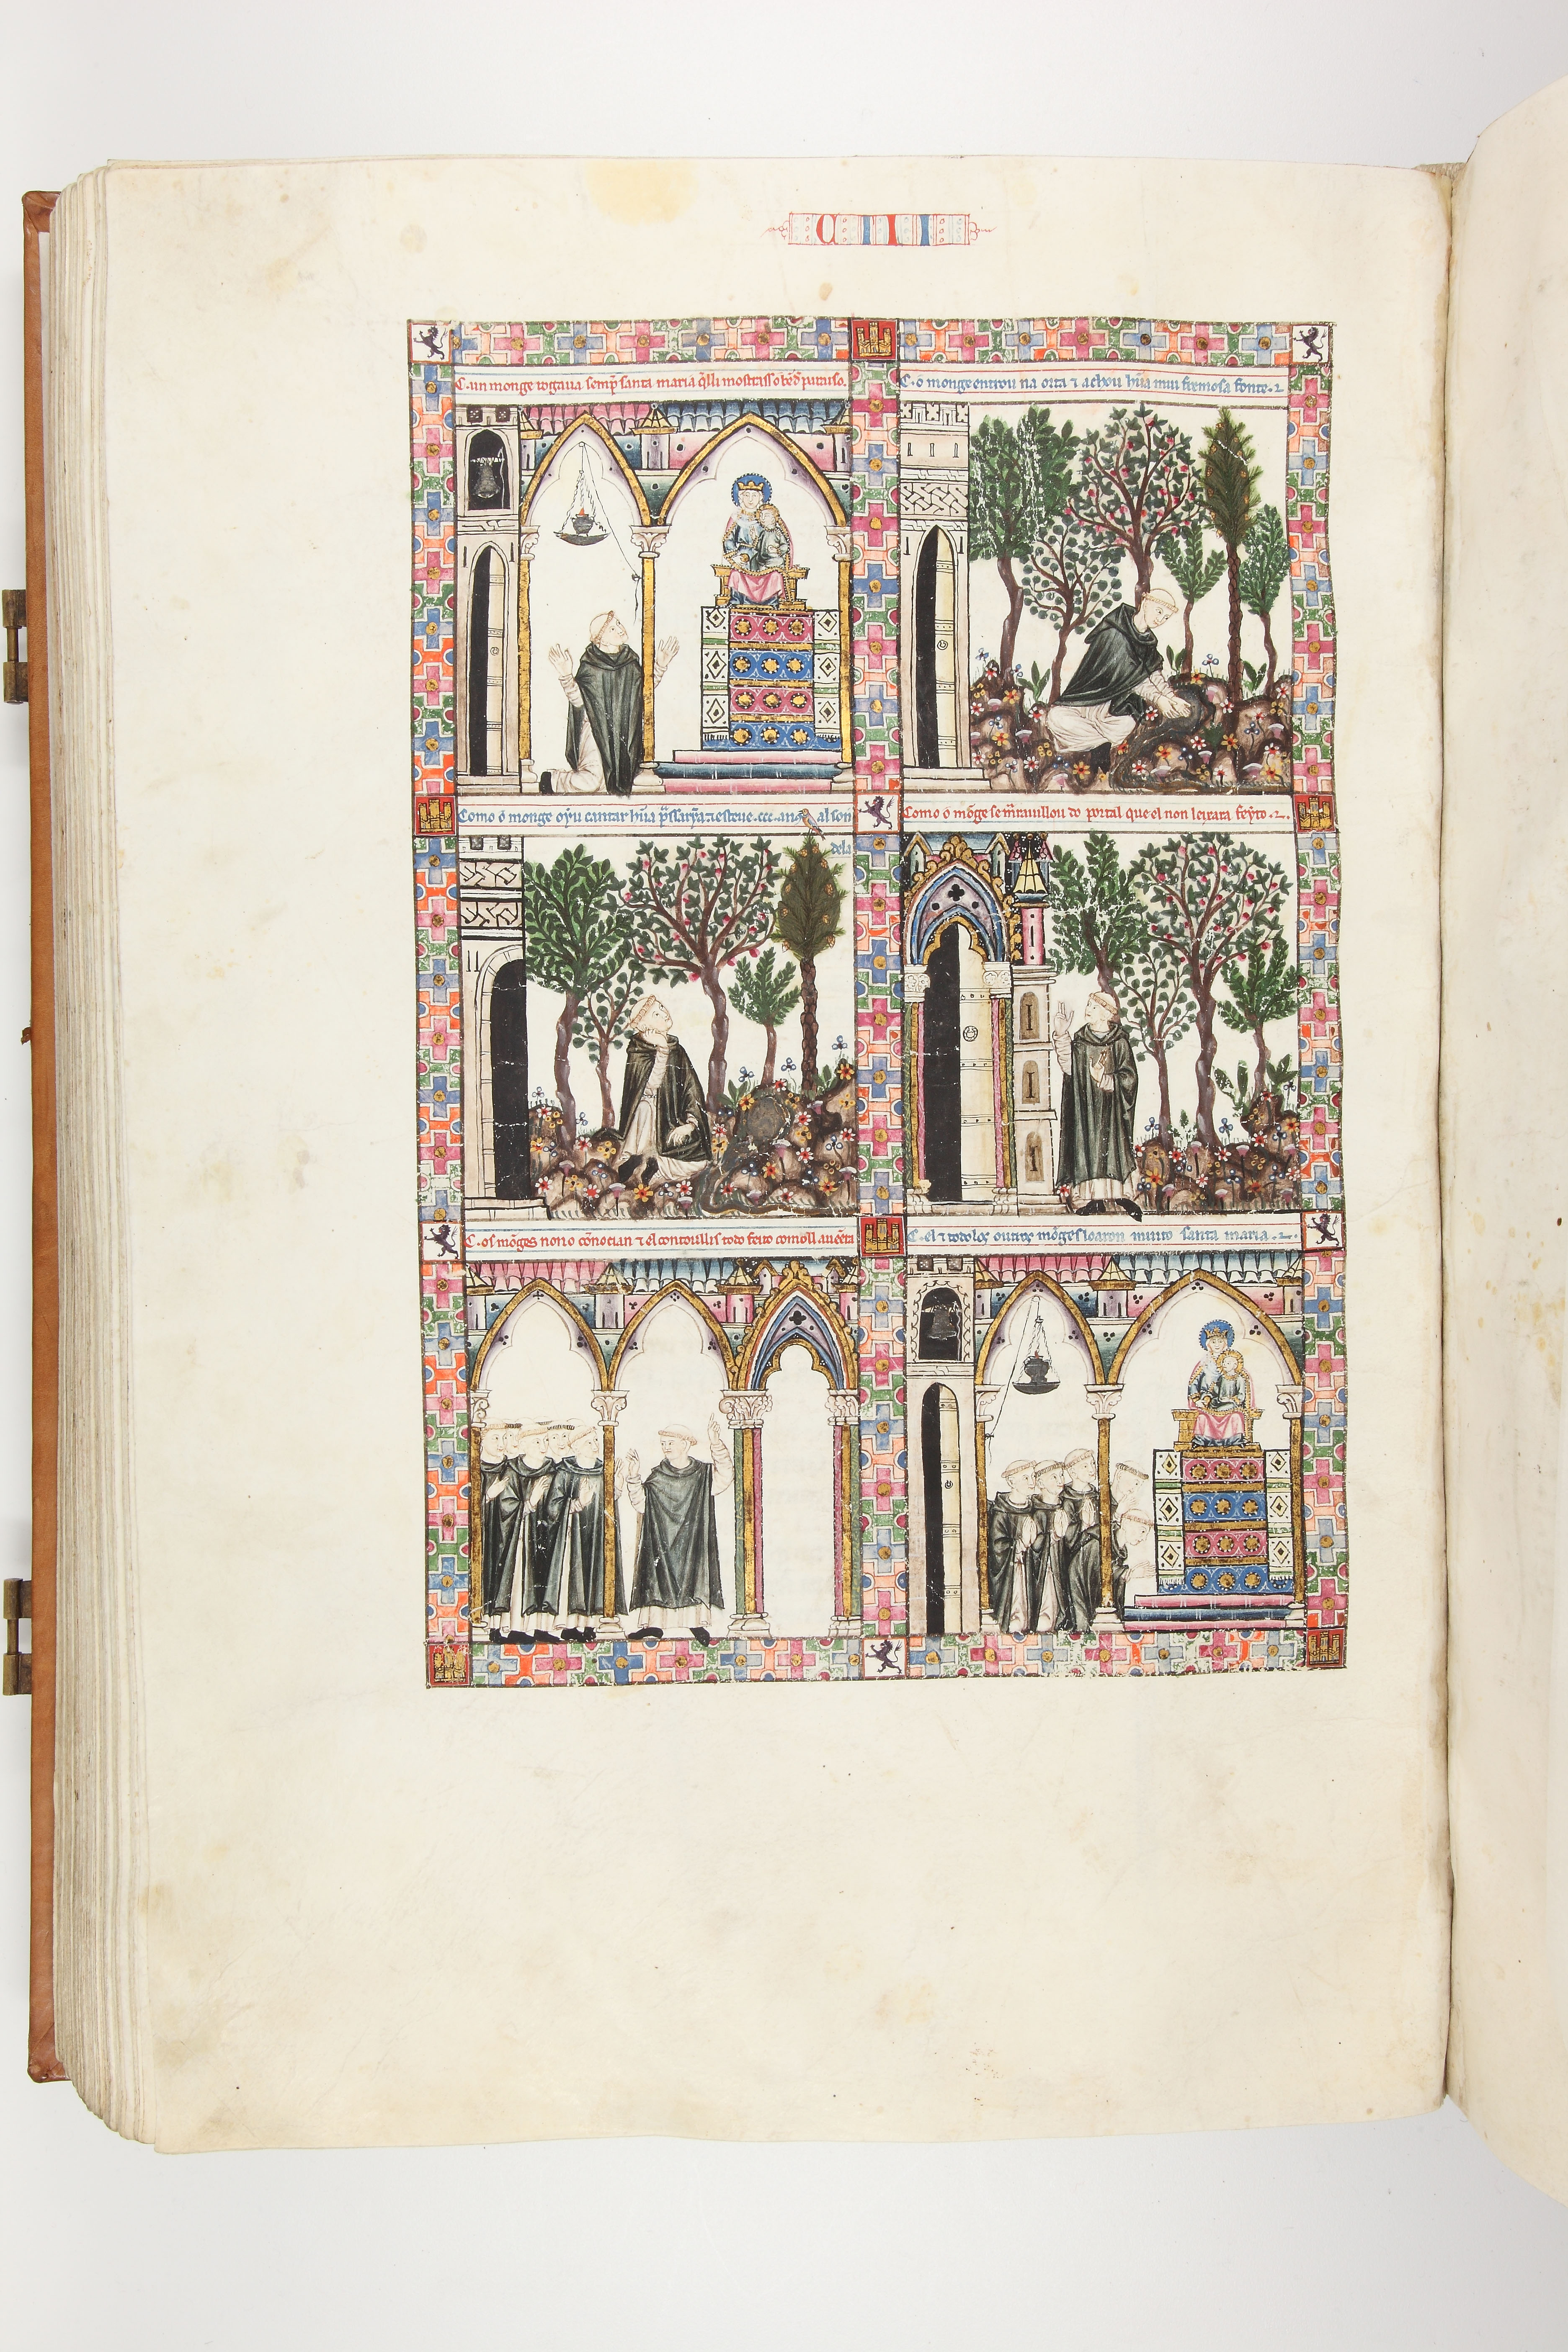 C III
C. un monge rogaua semp̃ santa maria q̃lli mostrasso bẽ d'parayso.
C. o monge entrou na orta ⁊ achou hũa mui fremosa fonte.
Como o monge oyu cantar hũa passarỹa ⁊ esteue .ccc. anos al son
dela
Como o mõge se marauillou do portal que el non leixara feyto.
C. os mõges nono coñocian ⁊ el contoullis todo feito comoll auẽera
C. el ⁊ todolos outros mõges loaron muito santa maria.